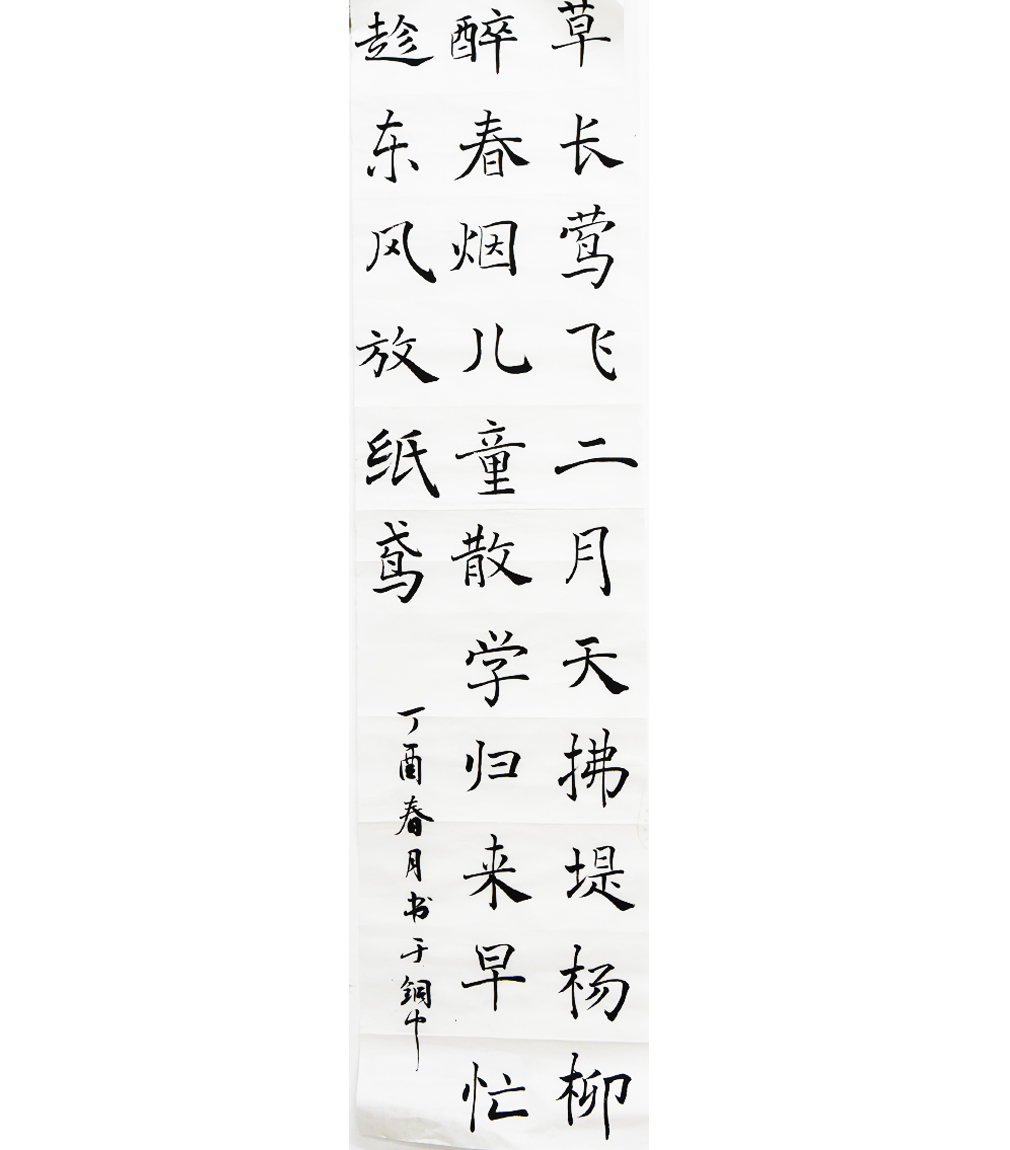 草长莺飞二月天拂堤杨柳
醉春烟儿童散学归来早忙
趁东风放纸鸢
丁酉春月书于銅中